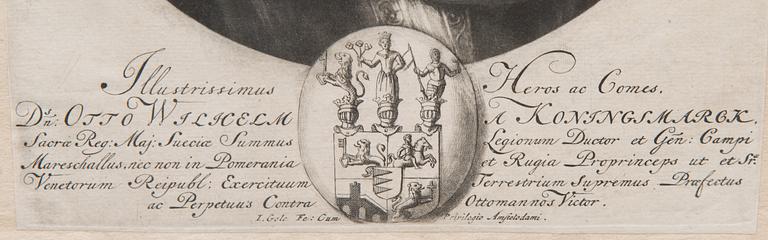 Illustrissimus Heros ac Comes.
Dsn: OTTO WILHELM A KONINGSMARCK.
Sacræ Reg: Maj: Sueciæ Summus Legionum Ductor et Gen: Campi
Mareschallus, nec non in Pomerania et Rugia Proprinceps ut et Sr:
Venetorum Reipubl: Exercituum Terrestrium Supremus Præfectus
ac Perpetuus Contra Ottomannos Victor.
I. Gole Fe: Cum Privilegio Amstelodami.